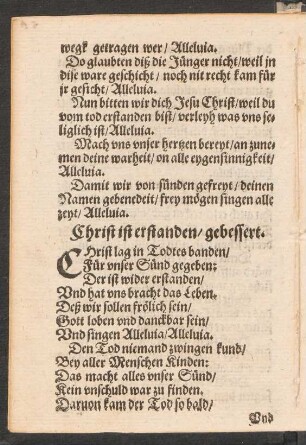 wegk getragen wer/ Alleluia.
Do glaubten diß die Jünger nicht/ weil jn
dise ware geschicht/ noch nit recht kam für
jr gesicht/ Alleluia.
Nun bitten wir dich Jesu Christ/ weil du
vom tod erstanden bist/ verleyh was vns se-
liglich ist/ Alleluia.
Mach vns vnser hertzen bereyt/ an zune-
men deine warheit/ on alle eygensinnigkeit/
Alleluia.
Damit wir von sünden gefreyt/ deinen
Namen gebenedeit/ frey mögen singen alle
zeyt/ Alleluia.
Christ ist erstanden/ gebessert.
CHrist lag in Todtes banden/
Für vnser Sünd gegeben:
Der ist wider erstanden/
Vnd hat vns bracht das Leben.
Deß wir sollen frölich sein/
Gott loben vnd danckbar sein/
Vnd singen Alleluia/ Alleluia.
Den Tod niemand zwingen kund/
Bey aller Menschen Kinden:
Das macht alles vnser Sünd/
Kein vnschuld war zu finden.
Daruon kam der Tod so bald/
Vnd